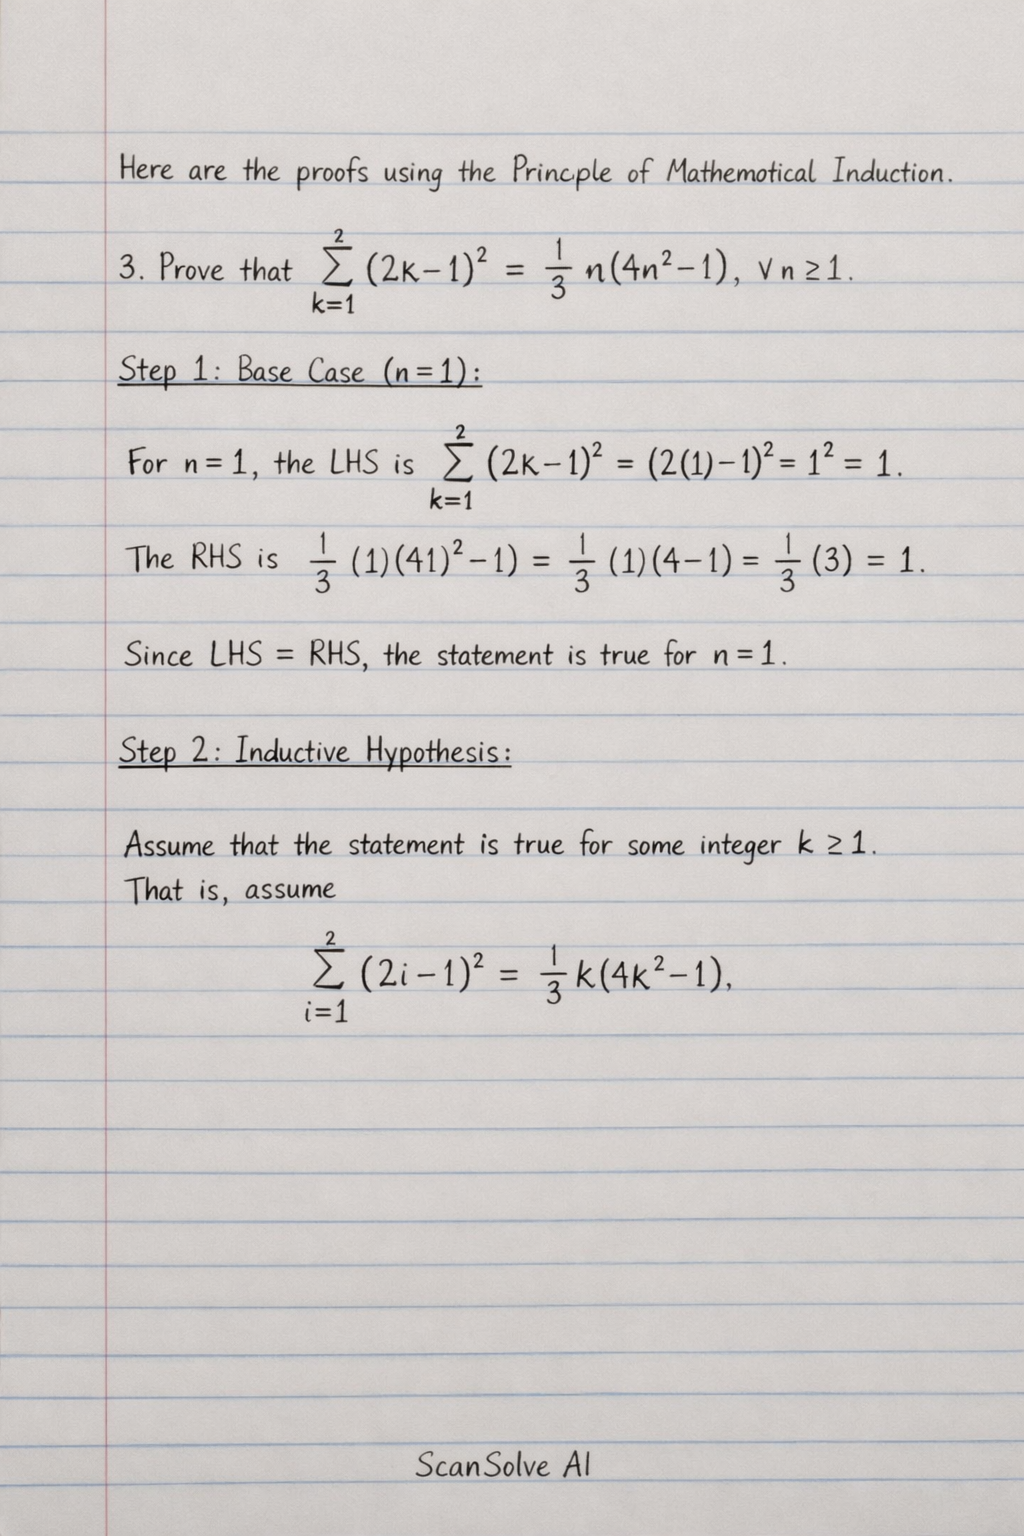 Here are the proofs using the Princple of Mathemotical Induction.
3. Prove that ∑_{k=1}^{2} (2k−1)² = 1/3 n(4n²−1), ∀n ≥ 1.
Step 1: Base Case (n = 1):
For n = 1, the LHS is ∑_{k=1}^{2} (2k−1)² = (2(1)−1)² = 1² = 1.
The RHS is 1/3 (1)(41)²−1) = 1/3 (1)(4−1) = 1/3 (3) = 1.
Since LHS = RHS, the statement is true for n = 1.
Step 2: Inductive Hypothesis:
Assume that the statement is true for some integer k ≥ 1.
That is, assume
∑_{i=1}^{2} (2i−1)² = 1/3 k(4k²−1),
ScanSolve AI